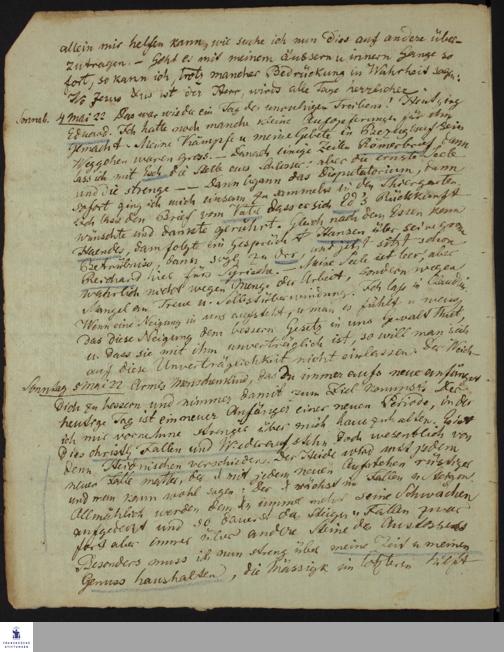 allein mir helfen kann, wie suche ich nun dies auf andere über-
zutragen. – Geht es mit meinem äussern u innern Gange so
fort, so kann ich, trotz mancher Bedrückung in Wahrheit sagen:
Wo Jesus Xtus ist der Herr, wirds alle Tage herrlicher.
Sonnab. 4 Mai 22 Das war wieder ein Tag des unruhigen Treibens! Heut ging
Eduard. Ich hatte noch manche kleine Aufopferung für ihn
gemacht. Meine Kämpfe u meine Gebete in Beziehung auf sein
Weggehen waren gross. – Danach einige Zeilen Römerbrief, dann
und die strenge – Dann begann das Disputatorium, dann
sofort ging ich mich einsam zu sammeln in den Thiergarten
Ich las den Brief von dass er sich Ed's Rückkunft
wünschte und dankte gerührt. Gleich nach dem Essen kam
dann folgt ein Gespräch über seine
Betrübniss, dann und jetzt sitzt schon
hier fürs Syrische. – Meine Seele ist leer, aber
wahrlich nicht wegen Menge der Arbeit, sondern wegen
Mangel an Treue u Selbstüberwindung. Ich las in Claudius
Wenn eine Neigung in uns aufsteht, u man es fühlt u weiss,
das diese Neigung dem bessern Gesetz in uns Gewalt thut,
u dass sie mit ihm unverträglich ist, so will man sich
auf diese Unverträglichkeit nicht einlassen.
Sonntag 5 Mai 22 Armes Menschenkind, das Du immer aufs neue anfängst
Dich zu bessern und nimmer damit zum Ziel kommst. Der
heutige Tag ist ein neuer Anfänger einer neuen Periode, in der
ich mir vornehme strenger über mich hauszuhalten.
Dies christl. Fallen und Wiederaufstehn doch wesentlich von
dem Heidnischen verschieden. Der Heide wird mit jedem
neuen Falle matter, der X mit jedem neuen Aufstehen rüstiger
und man kann wohl sagen: Der X wächst im Fallen
Allmählich werden dem X immer mehr seine Schwächen
aufgedeckt und so dauert das Steigen u Fallen zwar
fort aber immer über andre Steine des Anstosses
Besonders muss ich nun streng über meine Zeit u meinen
Genuss haushalten, die Mässigk im letzteren
FRANCKESCHE
STIFTUNGEN